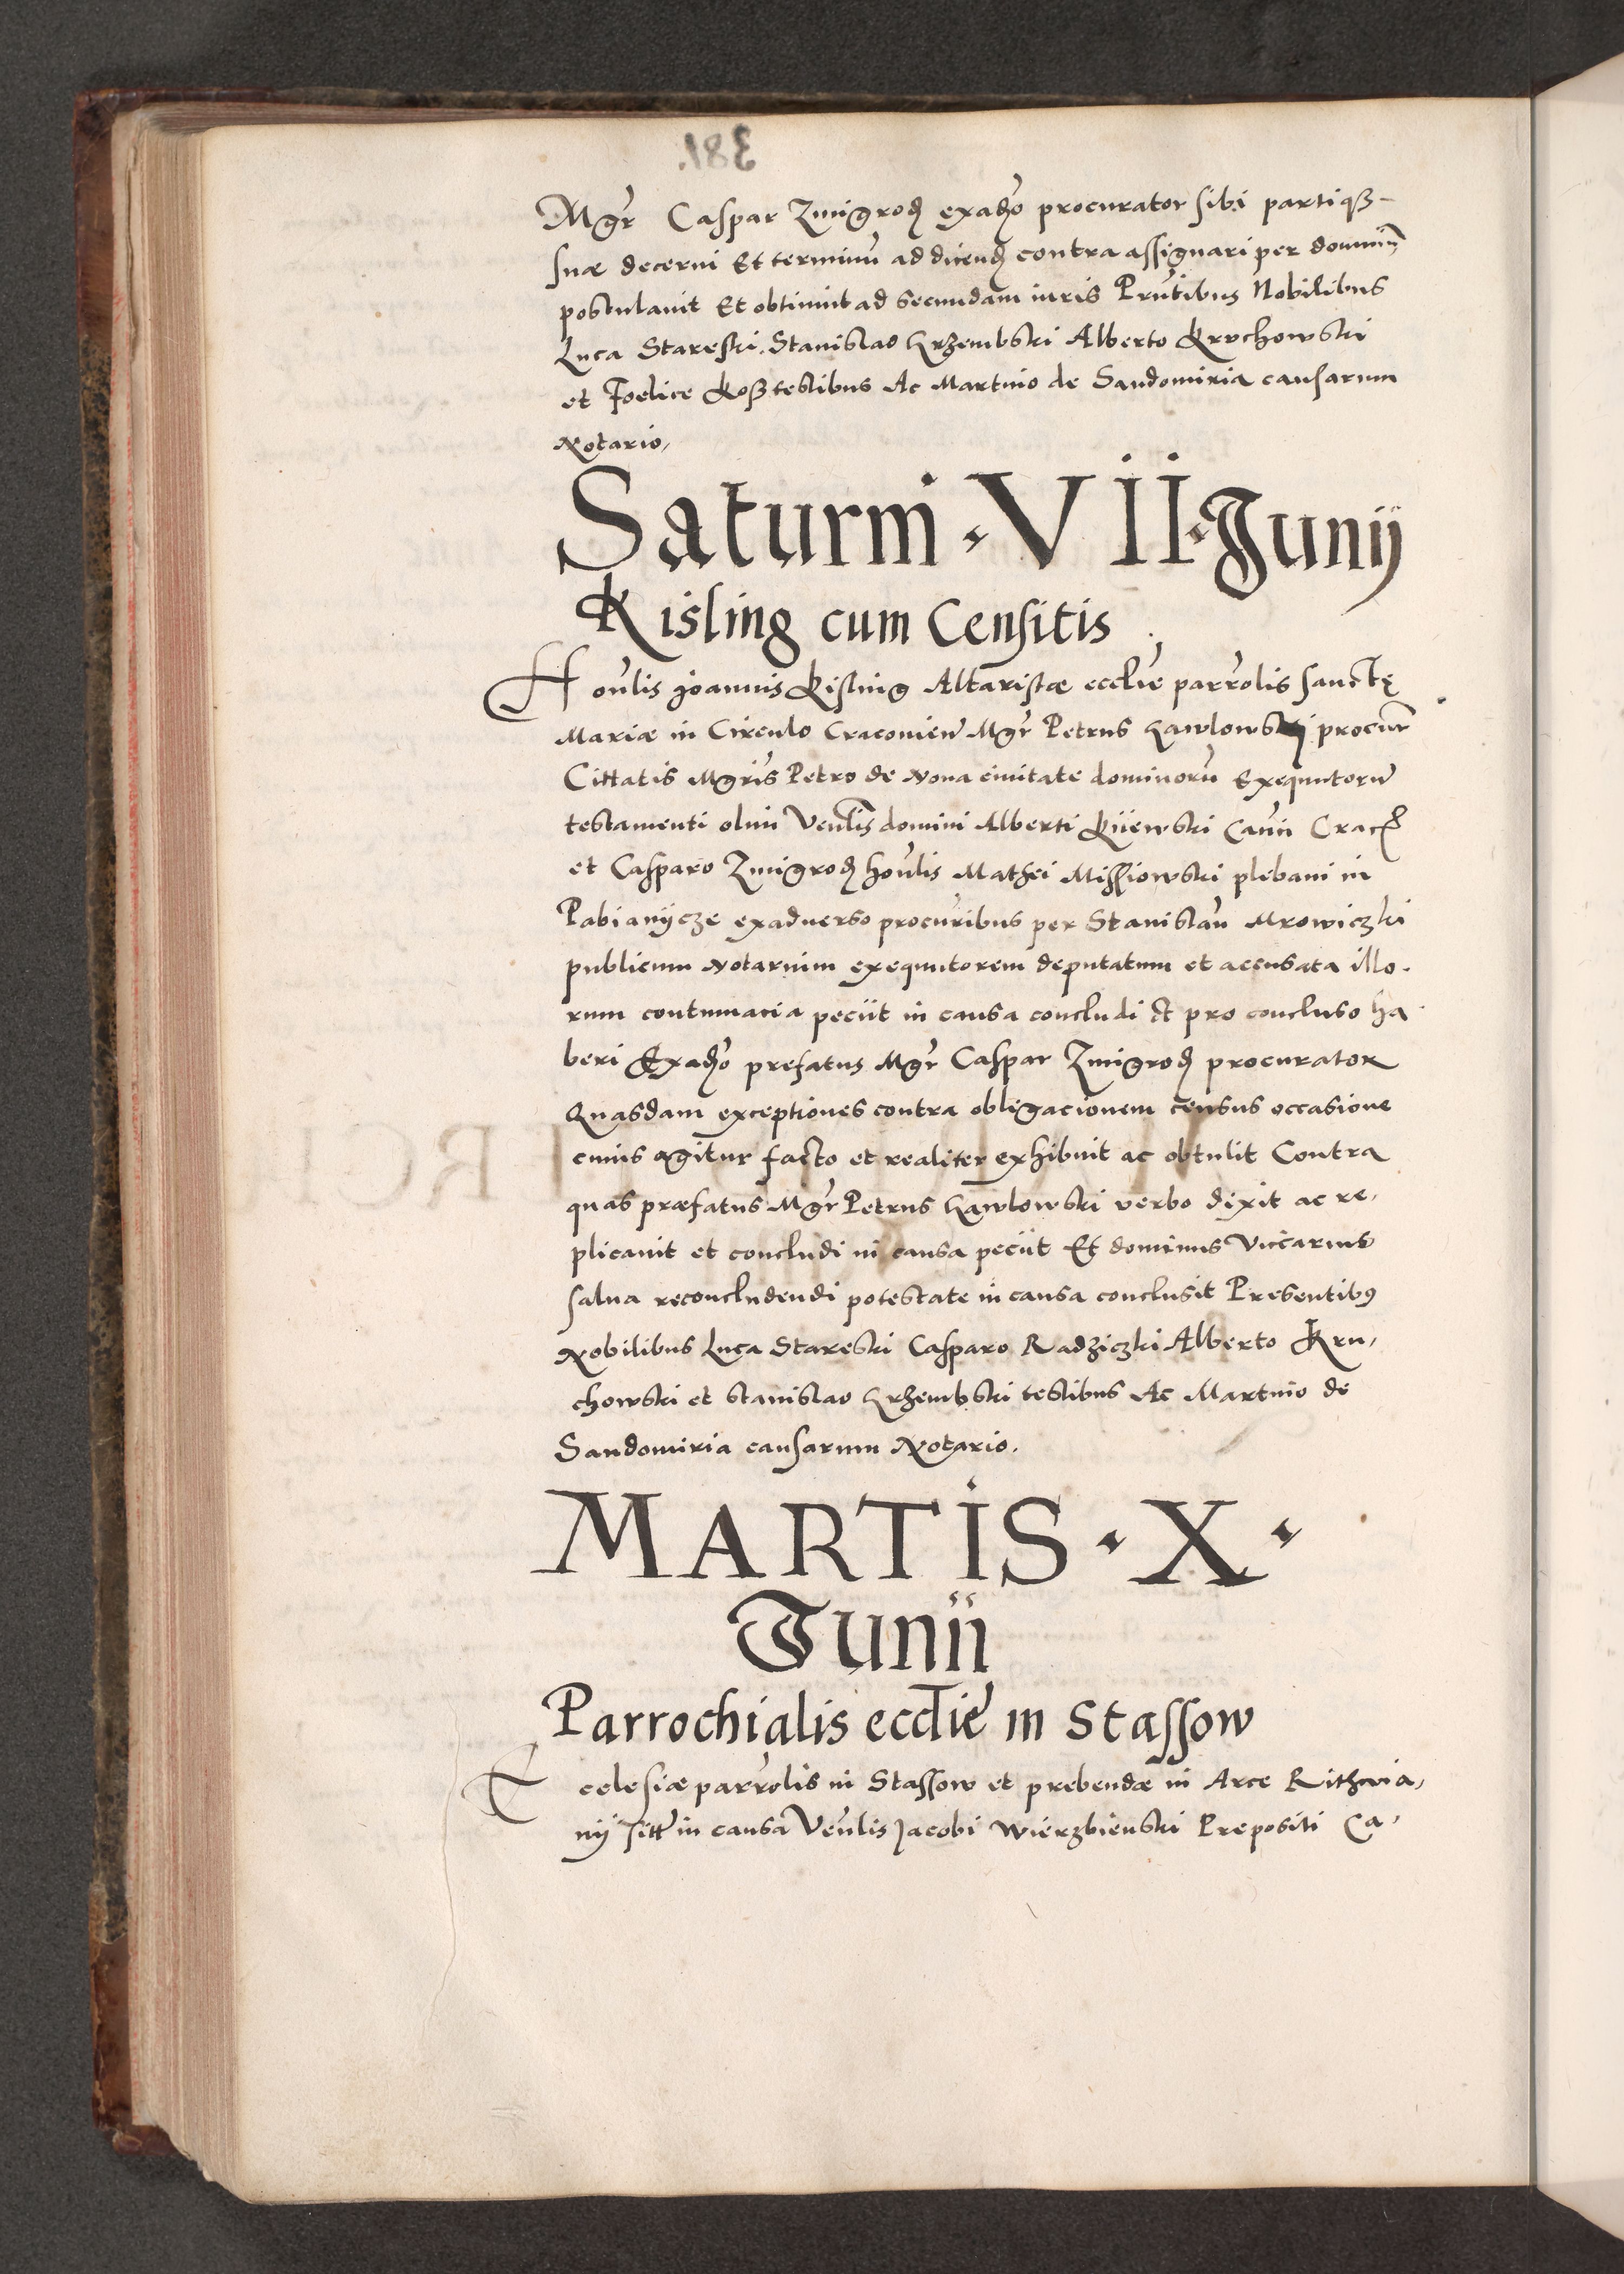 Mgr̃ Caspar Zmigrod exadỏ procurator sibi partiqꝫ
suæ decerni Et terminũ ad dicend contra assignari per dominũ
postulauit Et obtinuit ad secundam iuris Prñtibus Nobilibus
Luca Stareski. Stanislao Krzembski Alberto Kruchowski
et Foelice Koss testibus Ac Martino de Sandomiria causarum
Notario,
Saturni · VII · Junij
Kisling cum Censitis
Honlis̃ Joannis Kisling Altaristæ ecclie parrolis sanctę
Mariæ in Circulo Cracovien Mgr̃ Petrus Kawlowski procur̃
Cittatis Mgris̃ Petro de Nova civitate dominorũ Exequutorũ
testamenti olim Venlis̃ domini Alberti Kijewski Cañci Crac
et Casparo Zmigrod honlis̃ Mathei Missiowski plebani in
Pabianijcze exaduerso procuribus per Stanislaũ Mrowiczki
publicum Notarium exequutorem deputatum et accusata illo
rum contumacia peciit in causa concludi et pro concluso ha
beri Exadỏ prefatus Mgr̃ Caspar Zmigrod procurator
Quasdam exceptiones contra obligacionem census occasione
cuius agitur facto et realiter exhibuit ac obtulit Contra
quas præfatus Mgr̃ Petrus Kawlowski verbo dixit ac re,
plicauit et concludi in causa peciit Et dominus Viccarius
salua reconcludendi potestate in causa conclusit Presentibꝰ
Nobilibus Luca Stareski Casparo Radziczki Alberto Kru,
chowski et Stanislao Krzembski testibus Ac Martino de
Sandomiria causarum Notario.
MARTIS · X ·
Junii
Parrochialis ecclie in Stassow
Ecclesiæ parrolis in Stassow et prebendæ in Arce Rithwia,
nij sitt in causa Venlis̃ Jacobi Wierzbienski Prepositi Ca,